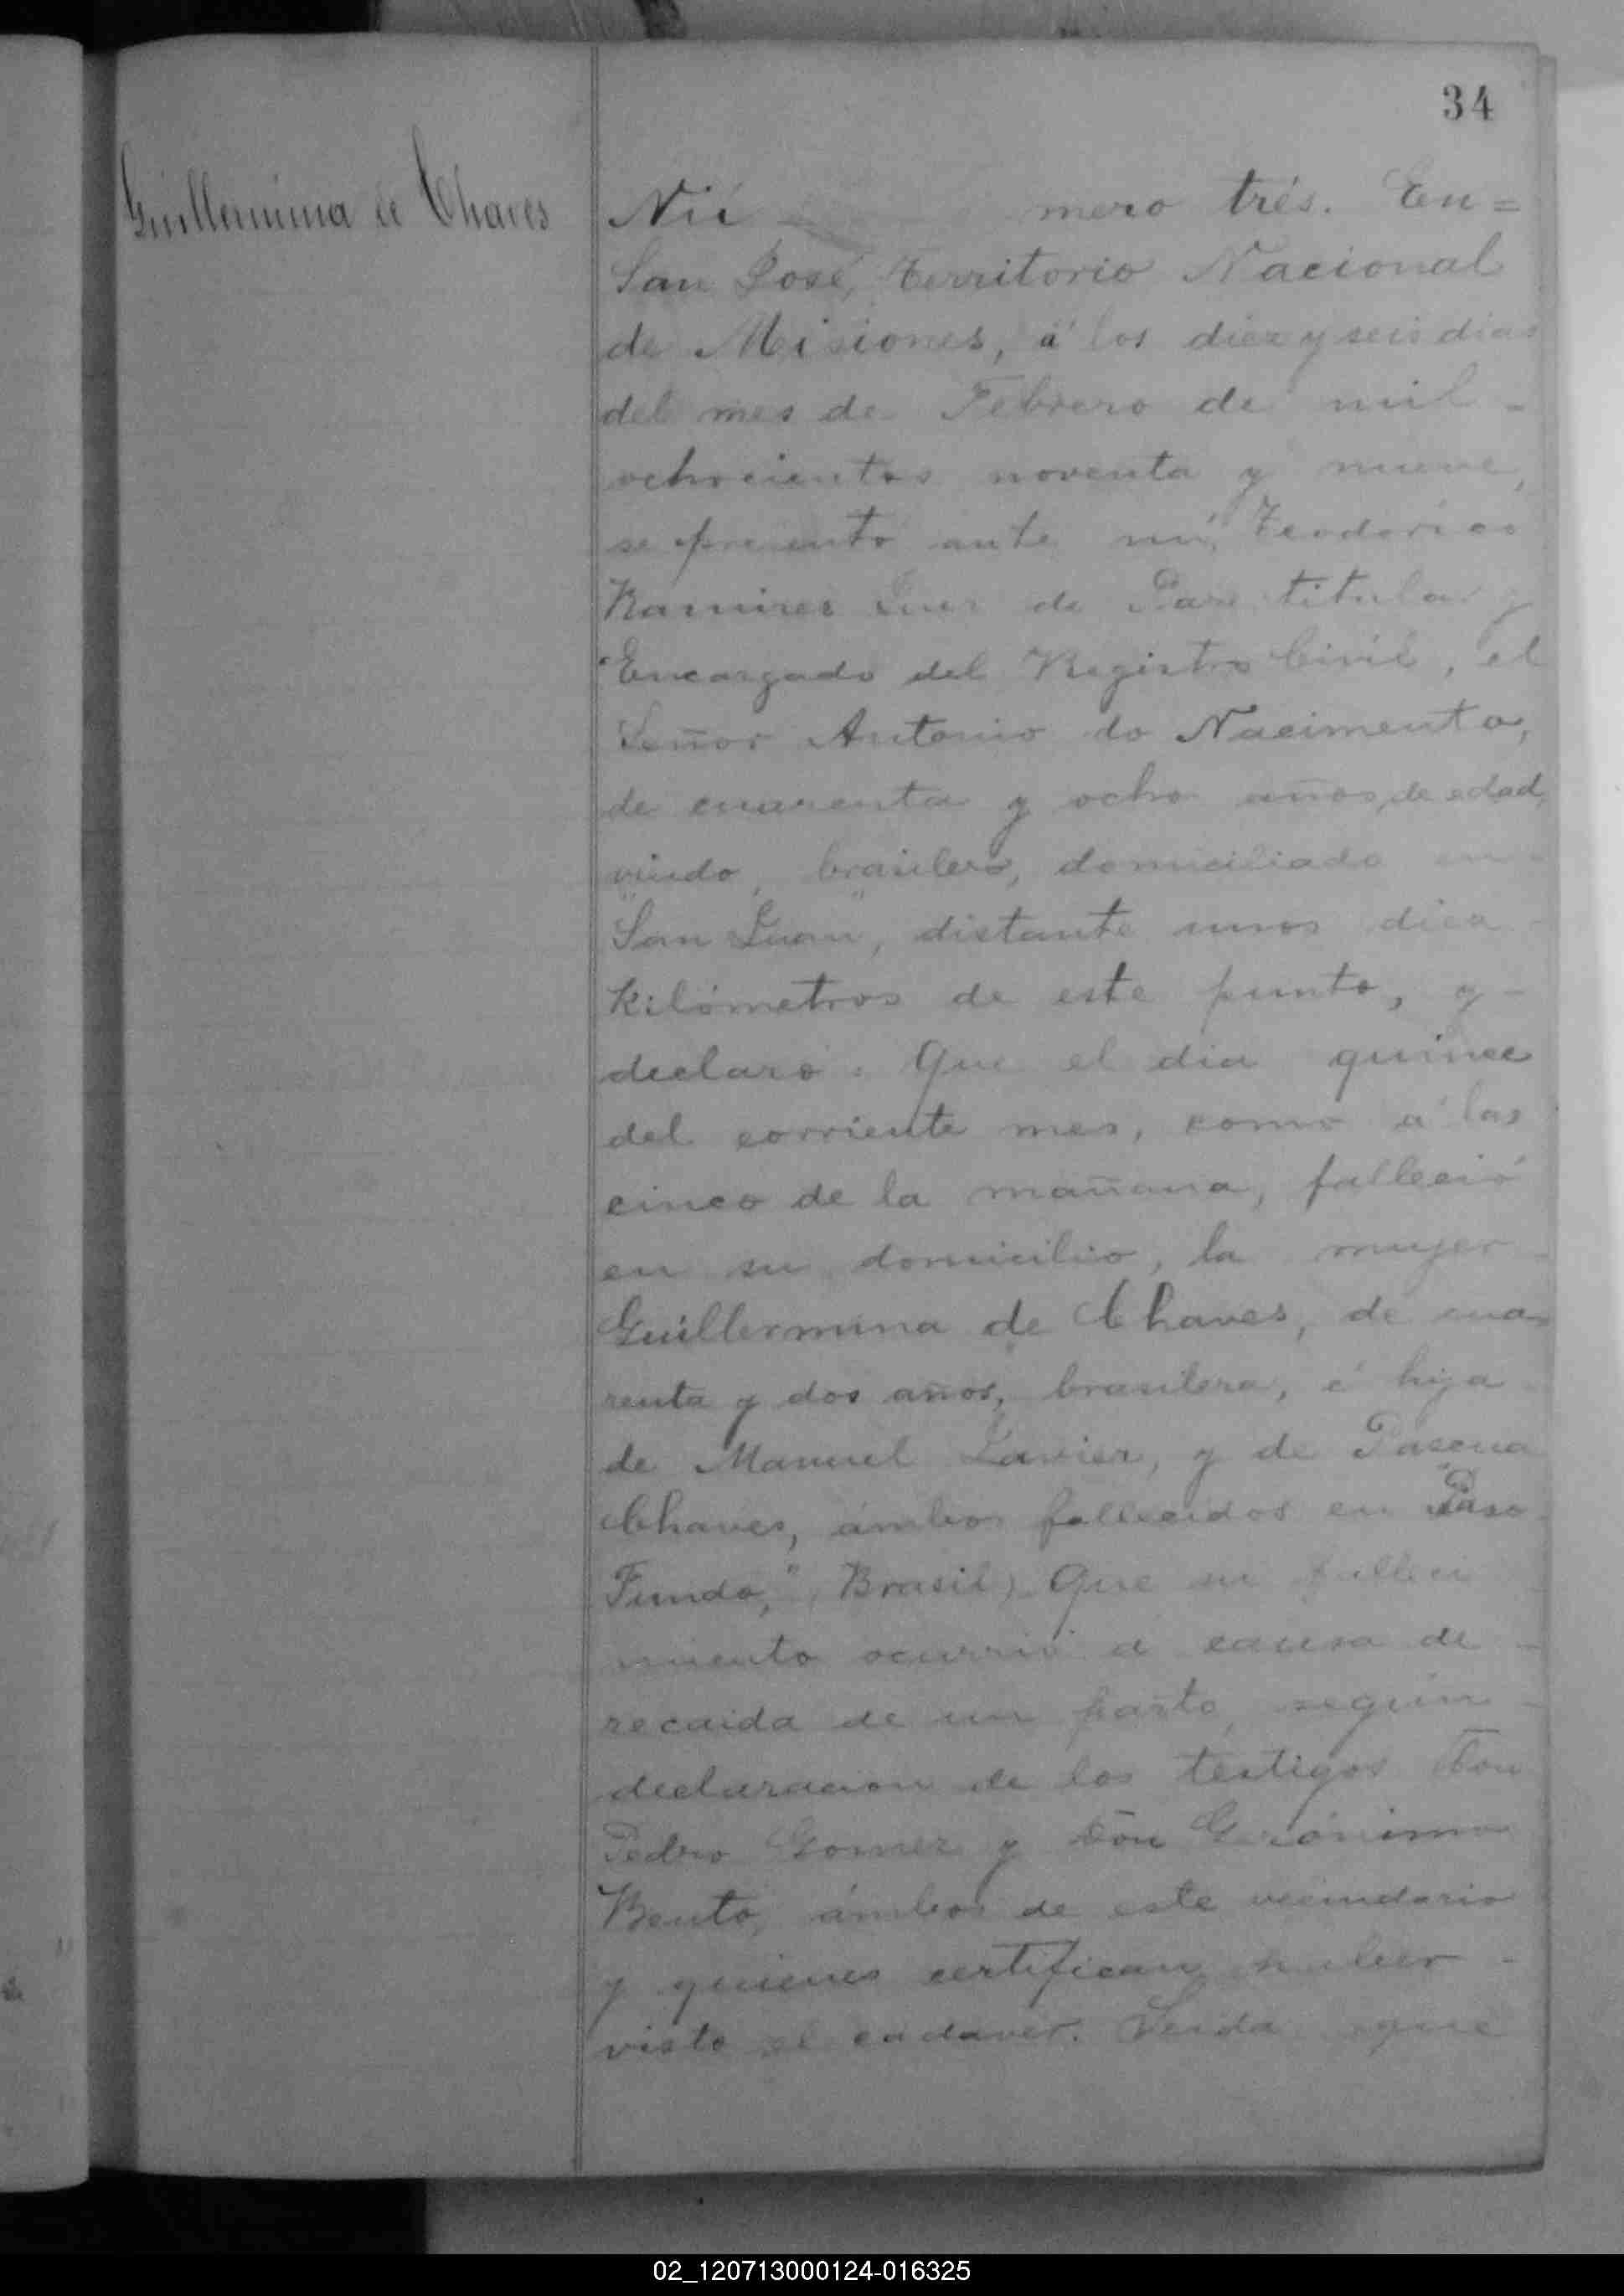 34
Guillermina de Chaves
Nú mero trés. En=
San José, Territorio Nacional
de Misiones, á los diez y seis dias
del mes de Febrero de mil -
ochocientos noventa y nueve,
se presentó ante mi, Teodorico
Ramires Juez de Paz titular y
Encargado del Registro Civil, el
Señor Antonio do Nacimento,
de cuarenta y ocho años, de edad,
viudo, brasilero, domiciliado en -
"San Juan", distante unos diez -
Kilómetros de este punto, y -
declaró: Que el dia quince
del corriente mes, como á las
cinco de la mañana, falleció
en su domicilio, la mujer -
Guillermina de Chaves, de cua-
renta y dos años, brasilera, é hija
de Manuel Lavier, y de Pascua
Chaves, ámbos fallecidos en "Paso
Fundo," (Brasil) Que su falleci
miento ocurrió a causa de -
recaida de un parto, según -
declaracion de los testigos Don
Pedro Gomez y Don Gerónimo
Bento, ámbos de este vecindario
y quienes certifican haber -
visto el cadaver. Leida que
02_120713000124-016325